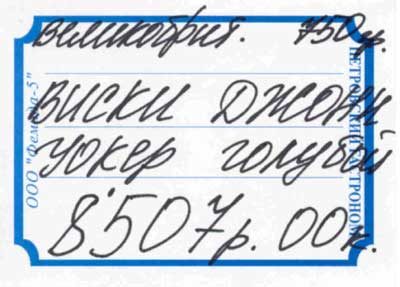 великобрит. 750 гр.
ВИСКИ ДЖОНИ
УОКЕР голубой
8'507р. 00к.
ООО "Фемида-5"
ПЕТРОВСКИЙ ГАСТРОНОМ